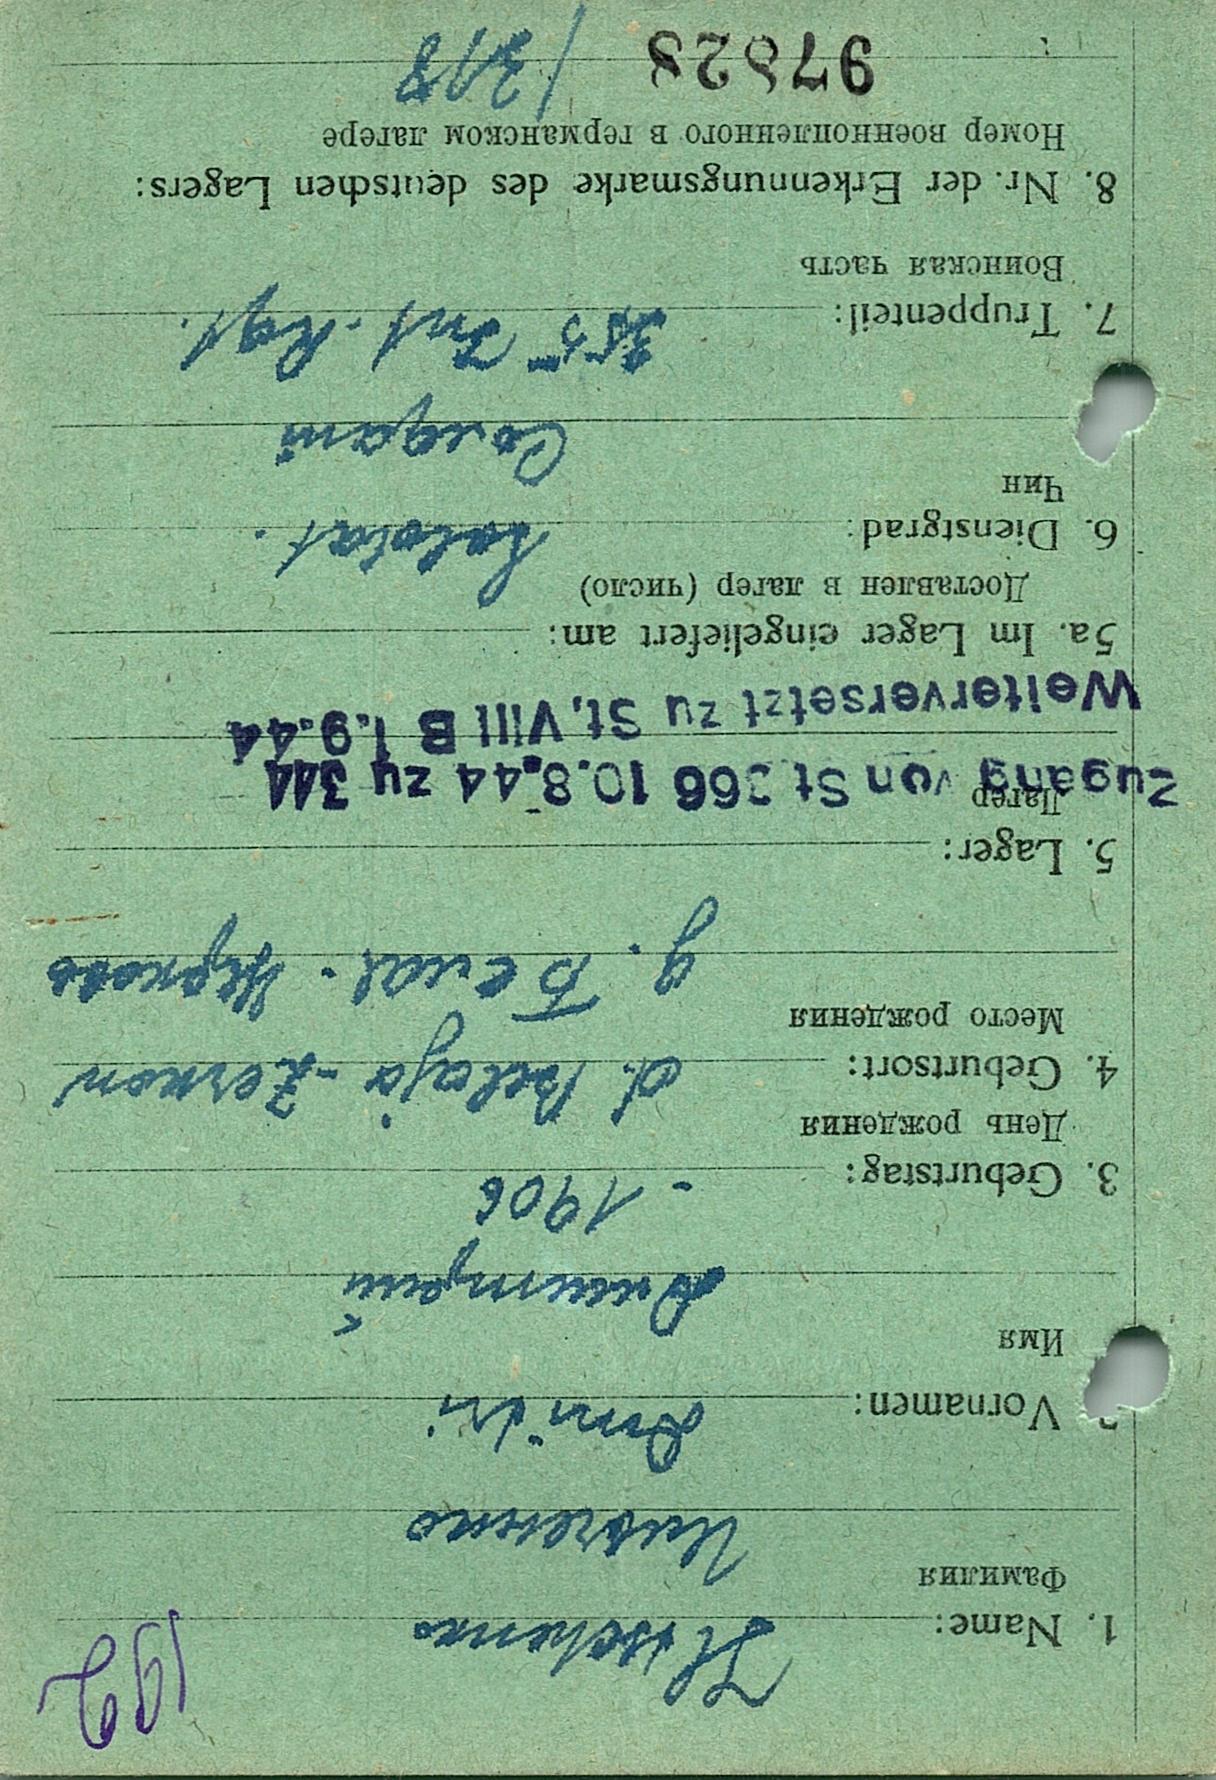 192
1. Name:
Фамилия
Vornamen: Dmitri
Имя
Дмитрий
3. Geburtstag: - 1906
День рождения
4. Geburtsort: d. Belaja-Zerkow
Место рождения
д. Белая-Церковь
5. Lager:
Лагерь
Zugang von St. 366 10.8.44 zu 344
Weiterversetzt zu St. VIII B 1.9.44
5a. Im Lager eingeliefert am:
Доставлен в лагер (число)
6. Dienstgrad: Soldat.
Чин
Солдат
7. Truppenteil: Inf. Rgt.
Воинская часть
8. Nr. der Erkennungsmarke des deutschen Lagers:
Номер военнопленного в германском лагере
97828 /318